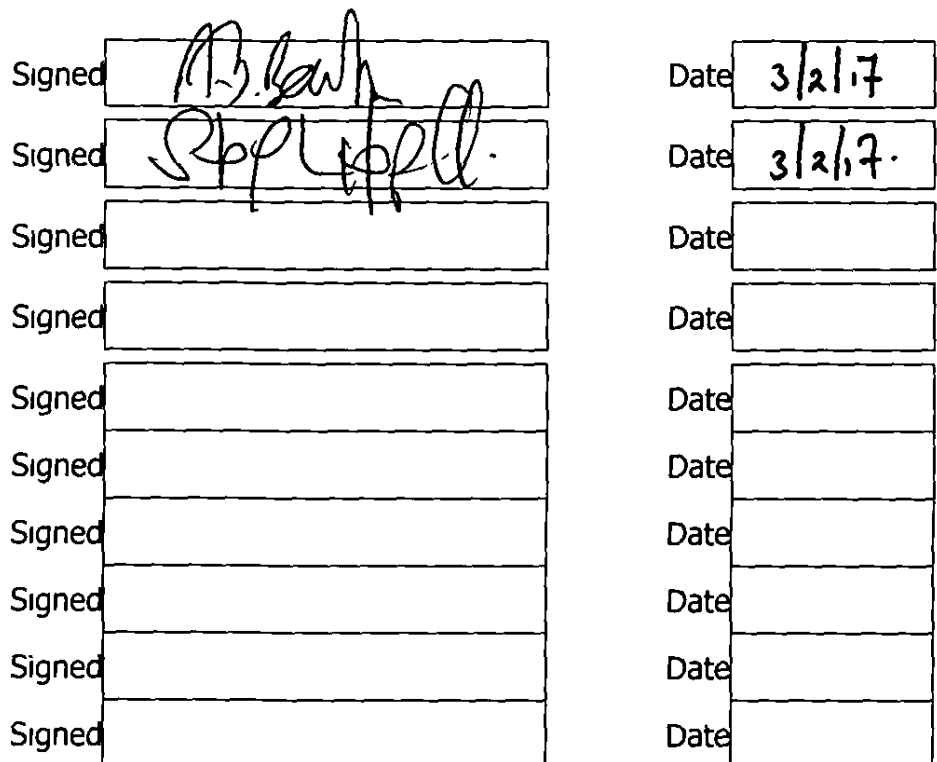 Signed Date 3/2/17
Signed Date 3/2/17.
Signed Date
Signed Date
Signed Date
Signed Date
Signed Date
Signed Date
Signed Date
Signed Date